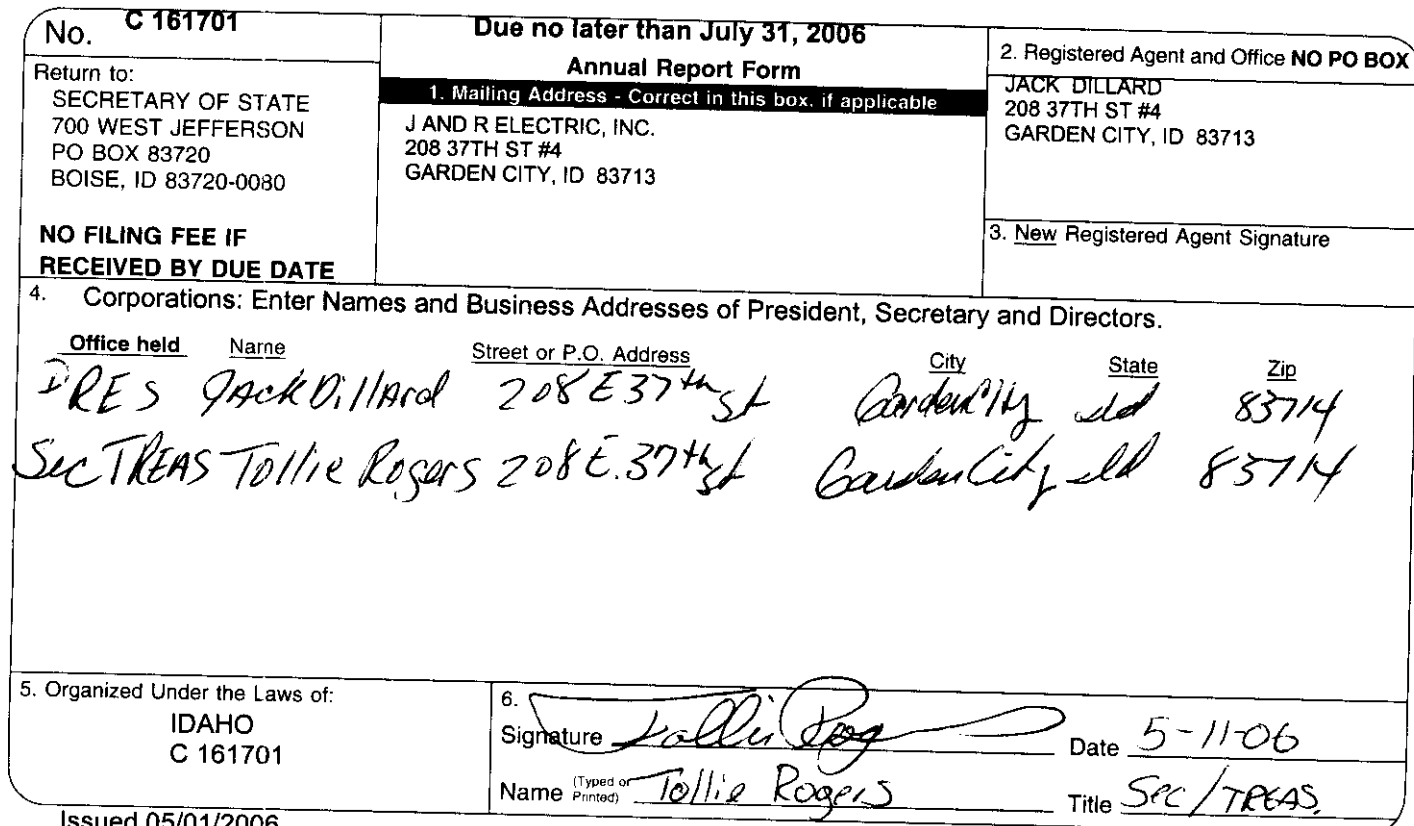 No. C 161701
Return to:
SECRETARY OF STATE
700 WEST JEFFERSON
PO BOX 83720
BOISE, ID 83720-0080
NO FILING FEE IF
RECEIVED BY DUE DATE
Due no later than July 31, 2006
Annual Report Form
1. Mailing Address - Correct in this box, if applicable
J AND R ELECTRIC, INC.
208 37TH ST #4
GARDEN CITY, ID 83713
2. Registered Agent and Office NO PO BOX
JACK DILLARD
208 37TH ST #4
GARDEN CITY, ID 83713
3. New Registered Agent Signature
4. Corporations: Enter Names and Business Addresses of President, Secretary and Directors.
Office held Name Street or P.O. Address City State Zip
PRES Jack Dillard 208 E 37th st Garden City Id 83714
Sec TREAS Tollie Rogers 208 E. 37th st Garden City Id 83714
5. Organized Under the Laws of:
IDAHO
C 161701
6.
Signature Tollie Rog Date 5-11-06
Name (Typed or Printed) Tollie Rogers Title Sec/TREAS.
Issued 05/01/2006